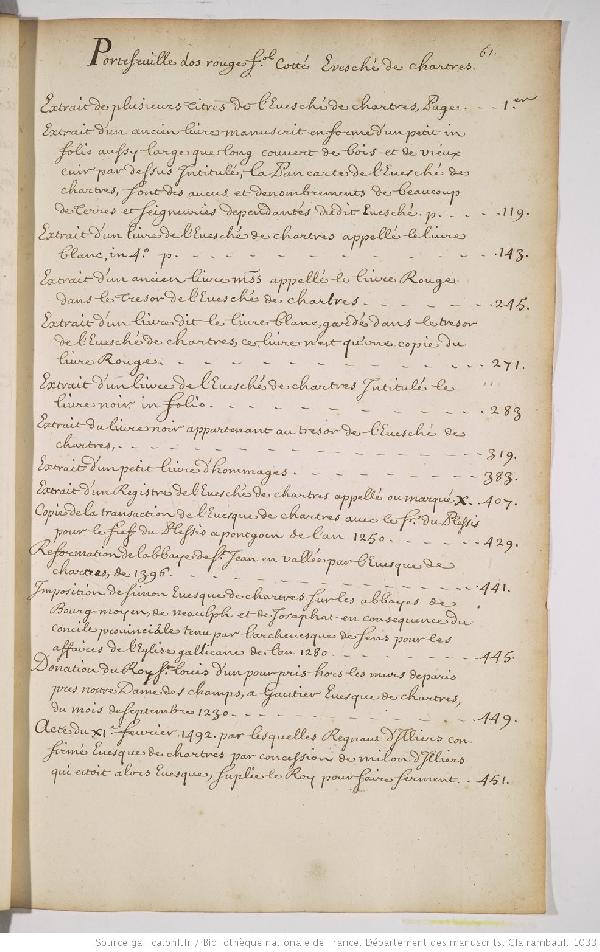 61.
Portefeuille dos rouge fol. Cotté Evesché de chartres.
Extrait de plusieurs titres de l'Evesché de chartres, Page. 1.er
Extrait d'un ancien livre manuscrit en forme d'un petit in
folio aussy large que long couvert de bois et de vieux
cuir par dessus Intitulé, la Pancarte de l'Evesché de
chartres, sont des aveus et denombrements de beaucoup
de terres et seigneuries dependantes dudit Evesché. p. 119.
Extrait d'un livre de l'Evesché de chartres appellé le livre
blanc, in 4.o p. 143.
Extrait d'un ancien livre mss appellé le livre Rouge
dans le tresor de l'Evesché de chartres. 245.
Extrait d'un livre dit le livre blanc, gardé dans le tresor
de l'Evesché de chartres, ce livre n'est qu'une copie du
livre Rouge. 271.
Extrait d'un livre de l'Evesché de chartres Intitulé le
livre noir in folio. 283
Extrait du livre noir appartenant au tresor de l'Evesché de
chartres. 319.
Extrait d'un petit livre d'hommages. 383.
Extrait d'un Registre de l'Evesché de chartres appellé ou marqué X. 407.
Copie de la transaction de l'Evesque de chartres avec le sr. du Plessis
pour le fief du Plessis a pontgoin de l'an 1250. 429.
Reformation de l'abbaye de st. Jean en vallée par l'Evesque de
chartres, de 1396. 441.
Imposition de simon Evesque de chartres sur les abbayes de
Bourg-moyen, de neaulph et de Josaphat en consequence du
concile provinciale tenu par l'archevesque de sens pour les
affaires de l'Eglise gallicane de l'an 1280. 445.
Donation du Roy st. Louis d'un pourpris hors les murs de paris
pres nostre Dame des champs, a Gautier Evesque de chartres,
du mois de septembre 1230. 449.
Acte du XI.e fevrier 1492. par lesquelles Regnaut d'Illiers con-
firmé Evesque de chartres par concession de milon d'Illiers
qui estoit alors Evesque, suplie le Roy pour faire serment. 451.
Source gallica.bnf.fr / Bibliothèque nationale de France. Département des manuscrits. Clairambault 1033